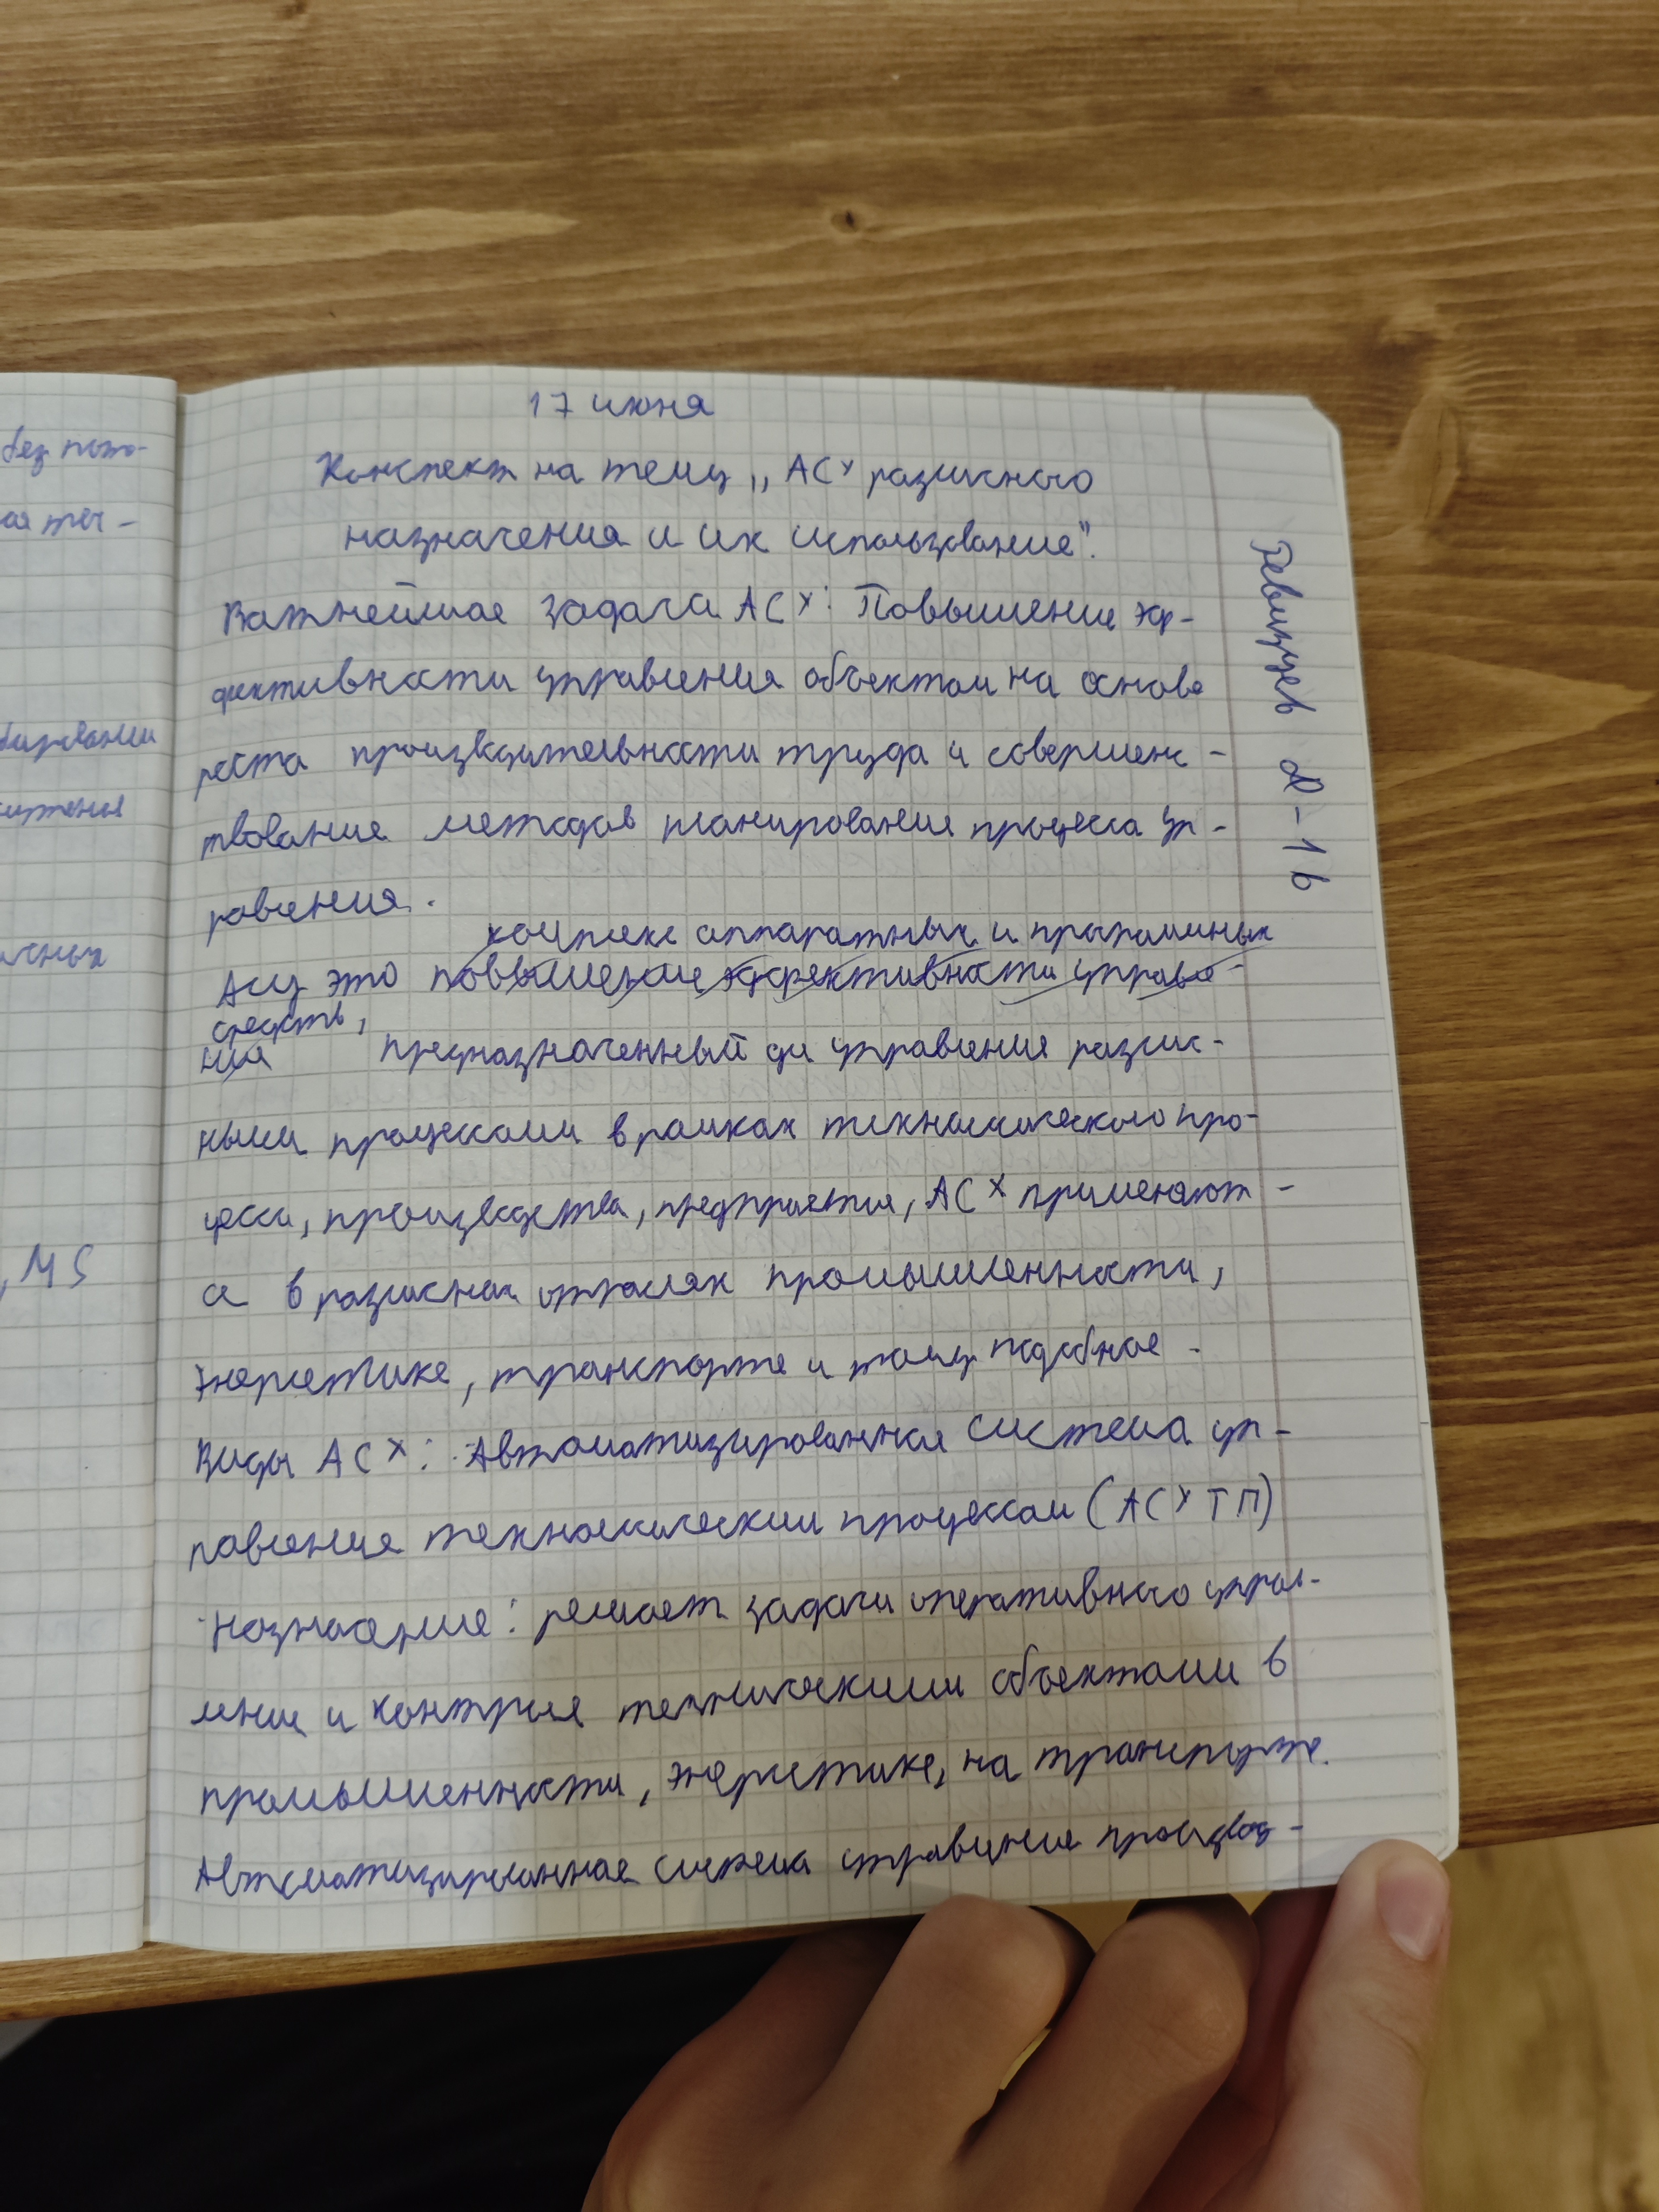 17 июня
Конспект на тему „АСУ различного
назначения и их использование".
Важнейшая задача АСУ: Повышение эф-
фективности управления объектом на основе
роста производительности труда и совершенс-
твование методов планирования процесса уп-
равления.
комплекс аппаратных и программных
Асу это повышение эффективности управле-
средств,
ния предназначенный для управления различ-
ными процессами в рамках технологического про-
цесса, производства, предприятия, АСУ применяют-
ся в различных отраслях промышленности,
энергетике, транспорте и тому подобное.
Виды АСУ: Автоматизированная система уп-
равления технологическим процессом (АСУ ТП)
Назначение: решает задачи оперативного управ-
ления и контроля техническими объектами в
промышленности, энергетике, на транспорте.
Автоматизированная система управления производ-
без пото-
MS